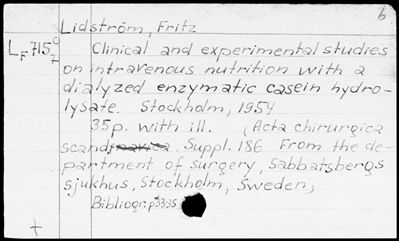 6
Lidström, Fritz
LF 715 c 7
Clinical and experimental studies
on intravenous nutrition with a
dialyzed enzymatic casein hydro-
lysate. Stockholm, 1954
35p. with ill. (Acta chirurgica
scand. Suppl. 186 From the de-
partment of surgery, Sabbatsbergs
sjukhus, Stockholm, Sweden)
Bibliogr.: p. 33-35